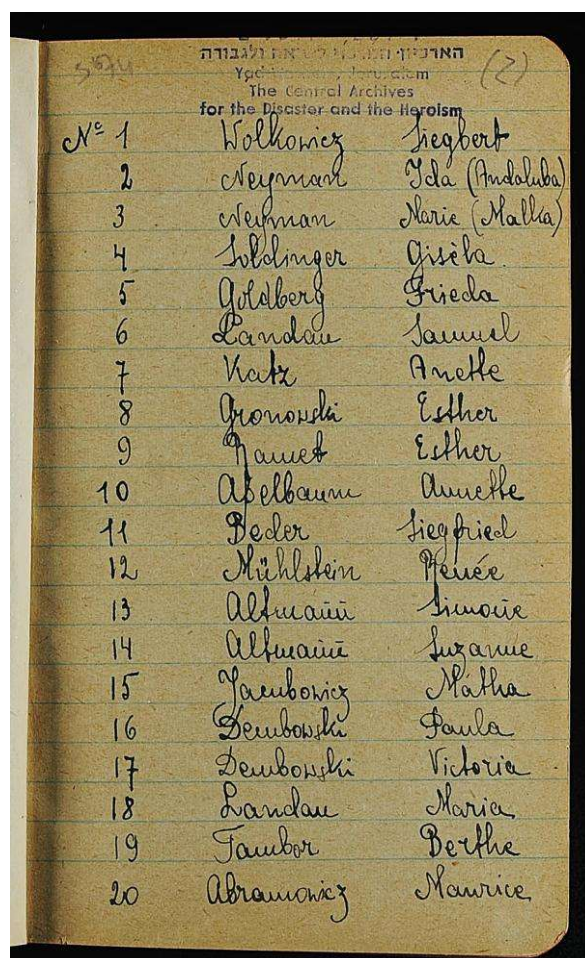 5974
הארכיון המרכזי לשואה ולגבורה
Yad Vashem, Jerusalem (2)
The Central Archives
for the Disaster and the Heroism
Nº 1 Wolkowicz Siegbert
2 Neyman Ida (Andaluba)
3 Neyman Marie (Malka)
4 Soldinger Gisèla
5 Goldberg Frieda
6 Landau Samuel
7 Katz Anette
8 Gronowski Esther
9 Ramet Esther
10 Apelbaum Annette
11 Beder Siegfried
12 Mühlstein Renée
13 Altmann Simone
14 Altmann Suzanne
15 Jambowicz Matha
16 Dembowski Paula
17 Dembowski Victoria
18 Landau Maria
19 Tambor Berthe
20 Abramowicz Maurice